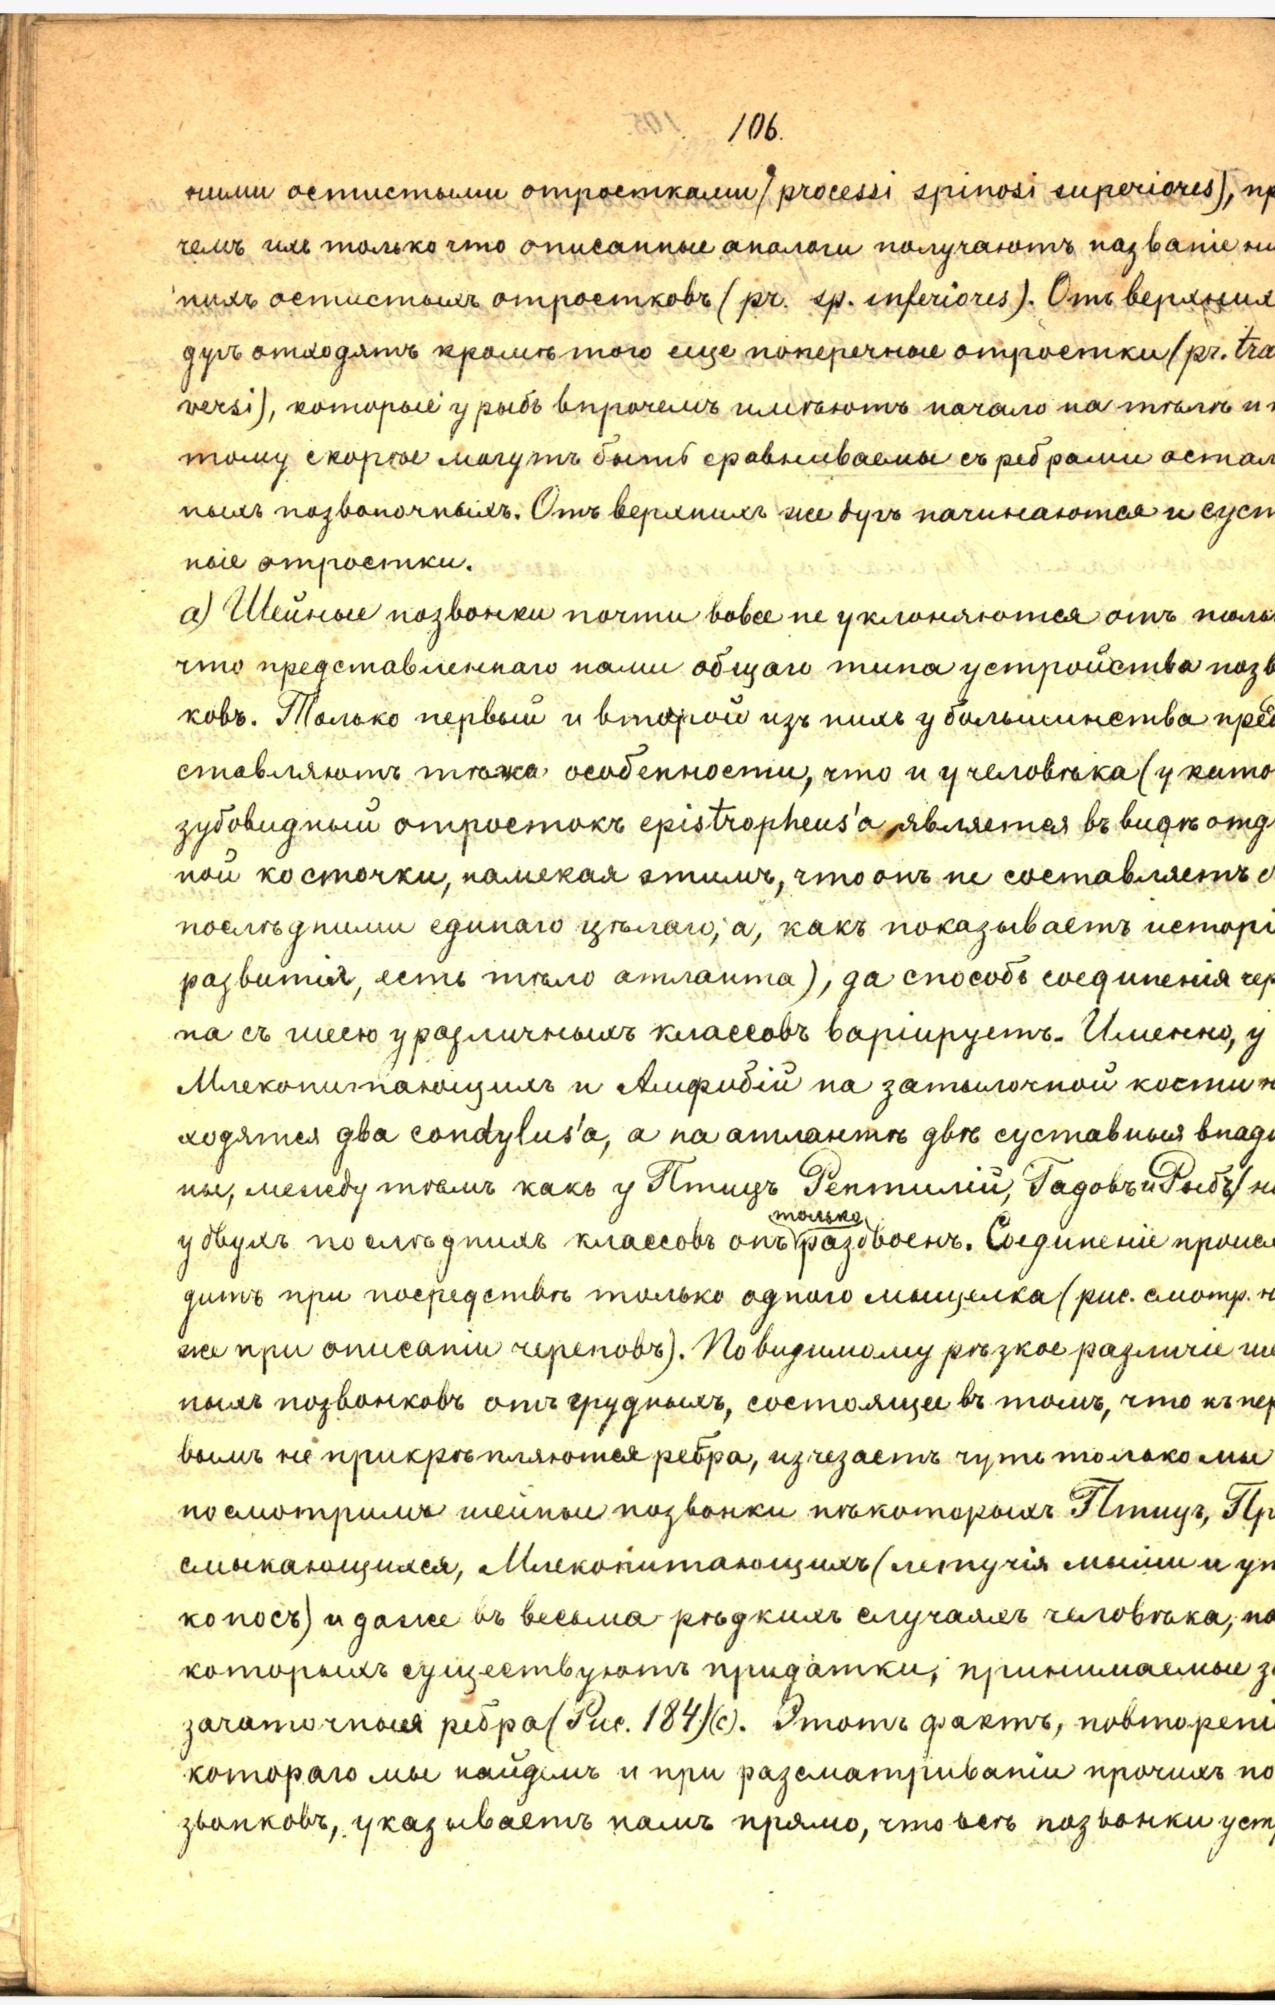 106.
ними остистыми отростками (processi spinosi superiores), пр
чемъ ихъ только что описанные аналоги получаютъ названіе ни
нихъ остистыхъ отростковъ (pr. sp. inferiores). Отъ верхних
дугъ отходятъ кромѣ того еще поперечные отростки (pr. tra
versi), которые у рыбъ впрочемъ имѣютъ начало на тѣлѣ и п
тому скорѣе могутъ быть сравниваемы съ ребрами остал
ныхъ позвоночныхъ. Отъ верхнихъ же дугъ начинаются и суст
ные отростки.
а) Шейные позвонки почти вовсе не уклоняются отъ толь
что представленнаго нами общаго типа устройства позв
ковъ. Только первый и второй изъ нихъ у большинства пред
ставляютъ тѣже особенности, что и у человѣка (у кито
зубовидный отростокъ epistropheus'а является въ видѣ отд
ной косточки, намекая этимъ, что онъ не составляетъ с
послѣдними единаго цѣлаго, а, какъ показываетъ исторі
развитія, есть тѣло атланта), да способъ соединенія чер
па съ шеею у различныхъ классовъ варіируетъ. Именно, у
Млекопитающихъ и Амфибій на затылочной кости н
ходятся два condylus'а, а на атлантѣ двѣ суставныя впади
ны, между тѣмъ какъ у Птицъ Рептилій, Гадовъ и Рыбъ (но
у двухъ послѣднихъ классовъ онъ только раздвоенъ. Соединеніе происх
дитъ при посредствѣ только одного мыщелка (рис. смотр. н
же при описаніи череповъ). Повидимому рѣзкое различіе ше
ныхъ позвонковъ отъ грудныхъ, состоящее въ томъ, что къ пер
вымъ не прикрѣпляются ребра, изчезаетъ чуть только мы
посмотримъ шейные позвонки нѣкоторыхъ Птицъ, Пр
смыкающихся, Млекопитающихъ (летучія мыши и ут
коносъ) и даже въ весьма рѣдкихъ случаяхъ человѣка, на
которыхъ существуютъ придатки, принимаемые за
зачаточныя ребра (Рис. 184)(с). Этотъ фактъ, повторені
котораго мы найдемъ и при разсматриваніи прочихъ по
звонковъ, указываетъ намъ прямо, что всѣ позвонки устр